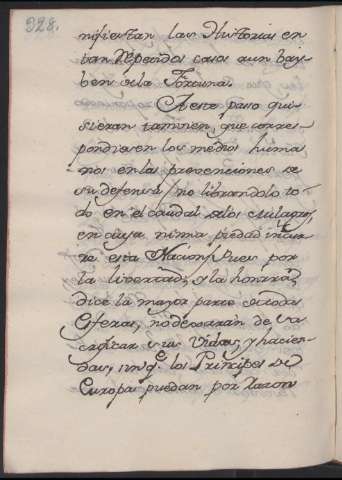 328.
nifiestan las Historias en
tan repetidos casos a un bay-
ben de la Fortuna.
A este paso qui-
sieran tambien, que corres-
pondiesen los medios huma
nos en las prevenciones de
su defensa, no librandolo to-
do en el caudal de los milagros,
en cuya nimia piedad incur
re esta Nacion, Pues por
la libertad, y la honrra,
dice la mayor parte de todas
Esferas, no dexarán de sa
crificar sus vidas, y hacien-
das, sin q.e los Principes de
Europa puedan por razon